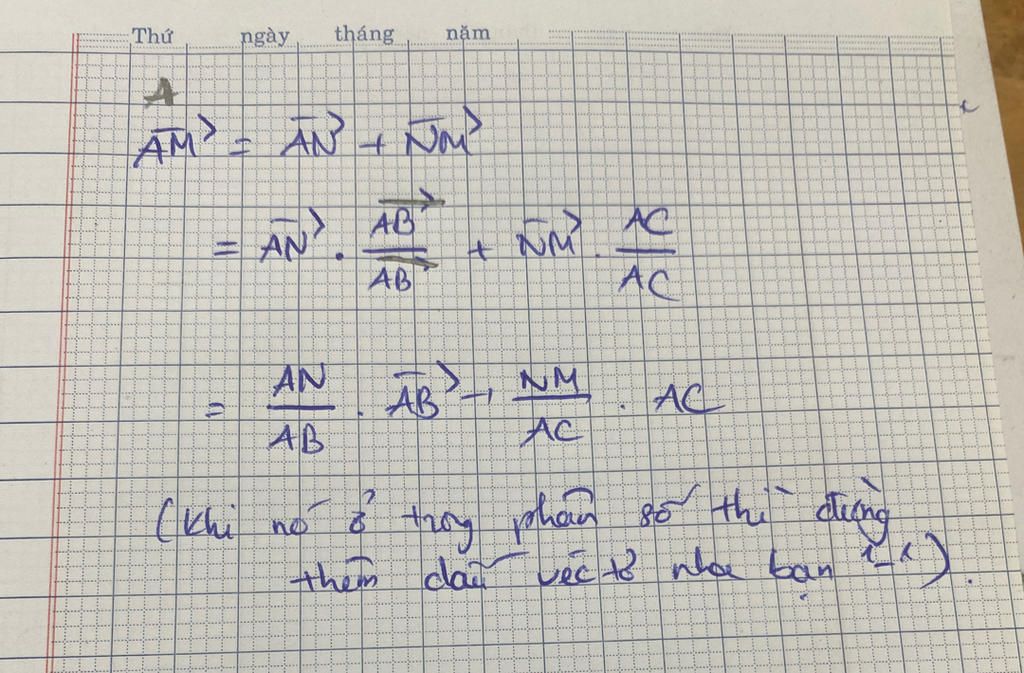 Thứ ngày tháng năm
A
AM⃗ = AN⃗ + NM⃗
= AN⃗ . AB⃗/AB⃗ + NM⃗ . AC/AC
= AN/AB . AB⃗ + NM/AC . AC
(khi nó ở trog phân số thì đừng
thêm dấu véc tơ nha bạn '-').